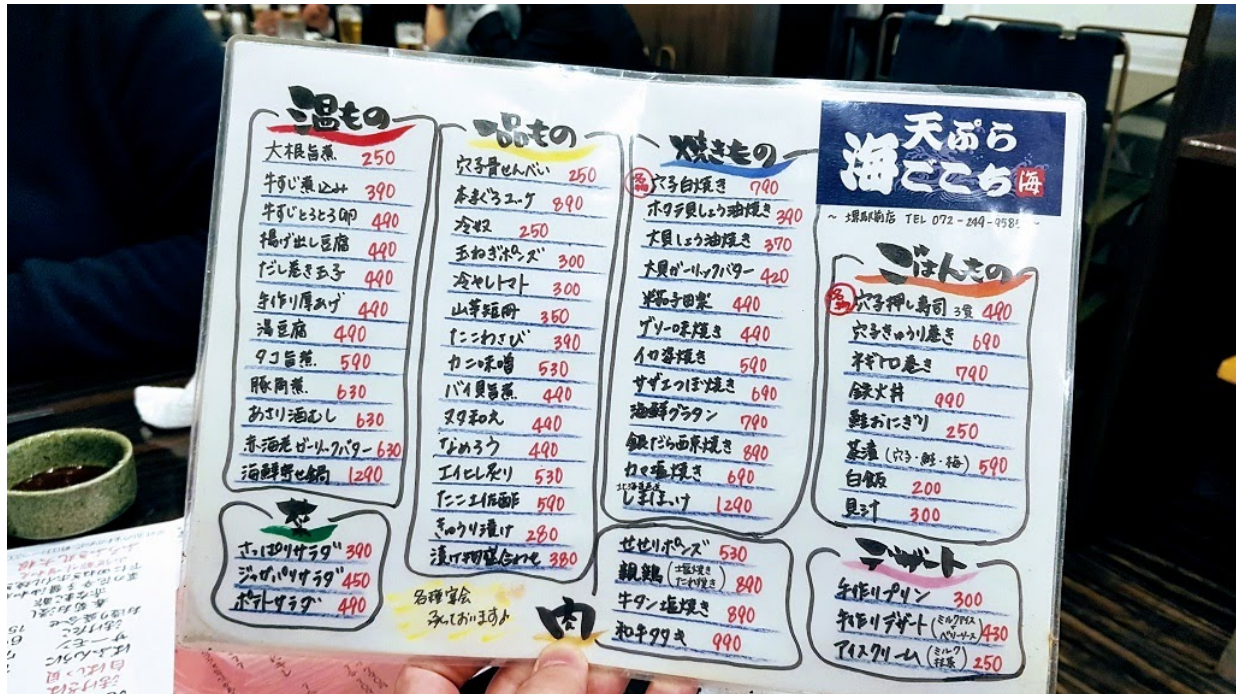 温もの
大根旨煮 250
牛すじ煮込み 390
牛すじとろとろ卵 490
揚げ出し豆腐 490
だし巻き玉子 490
手作り厚あげ 490
湯豆腐 490
タコ旨煮 590
豚角煮 630
あさり酒むし 630
赤海老ガーリックバター 630
海鮮寄せ鍋 1290
菜
さっぱりサラダ 390
ジャガバリサラダ 450
ポテトサラダ 490
一品もの
穴子骨せんべい 250
本まぐろユッケ 890
冷奴 250
玉ねぎポンズ 300
冷やしトマト 300
山芋短冊 350
たこわさび 390
カニ味噌 530
バイ貝旨煮 490
ヌタ和え 490
なめろう 490
エイヒレ炙り 530
たこ土佐酢 590
きゅうり漬け 280
漬け物盛合わせ 380
各種宴会
承っております♪
焼きもの
名物 穴子白焼き 790
ホタテ貝しょう油焼き 390
大貝しょう油焼き 370
大貝ガーリックバター 420
米茄子田楽 490
ゲソ一味焼き 490
イカ姿焼き 590
サザエつぼ焼き 690
海鮮グラタン 790
銀だら西京焼き 890
カマ塩焼き 690
北海道産
しまほっけ 1290
肉
せせりポンズ 530
親鶏(塩焼き たれ焼き) 890
牛タン塩焼き 890
和牛タタキ 990
天ぷら
海ごこち 海
~ 堺駅前店 TEL 072-249-9585 ~
ごはんもの
名物 穴子押し寿司 3貫 490
穴子きゅうり巻き 690
ネギトロ巻き 790
鉄火丼 990
鮭おにぎり 250
茶漬(穴子・鮭・梅) 590
白飯 200
貝汁 300
デザート
手作りプリン 300
手作りデザート(ミルクアイス ベリーソース) 430
アイスクリーム(ミルク 抹茶) 250